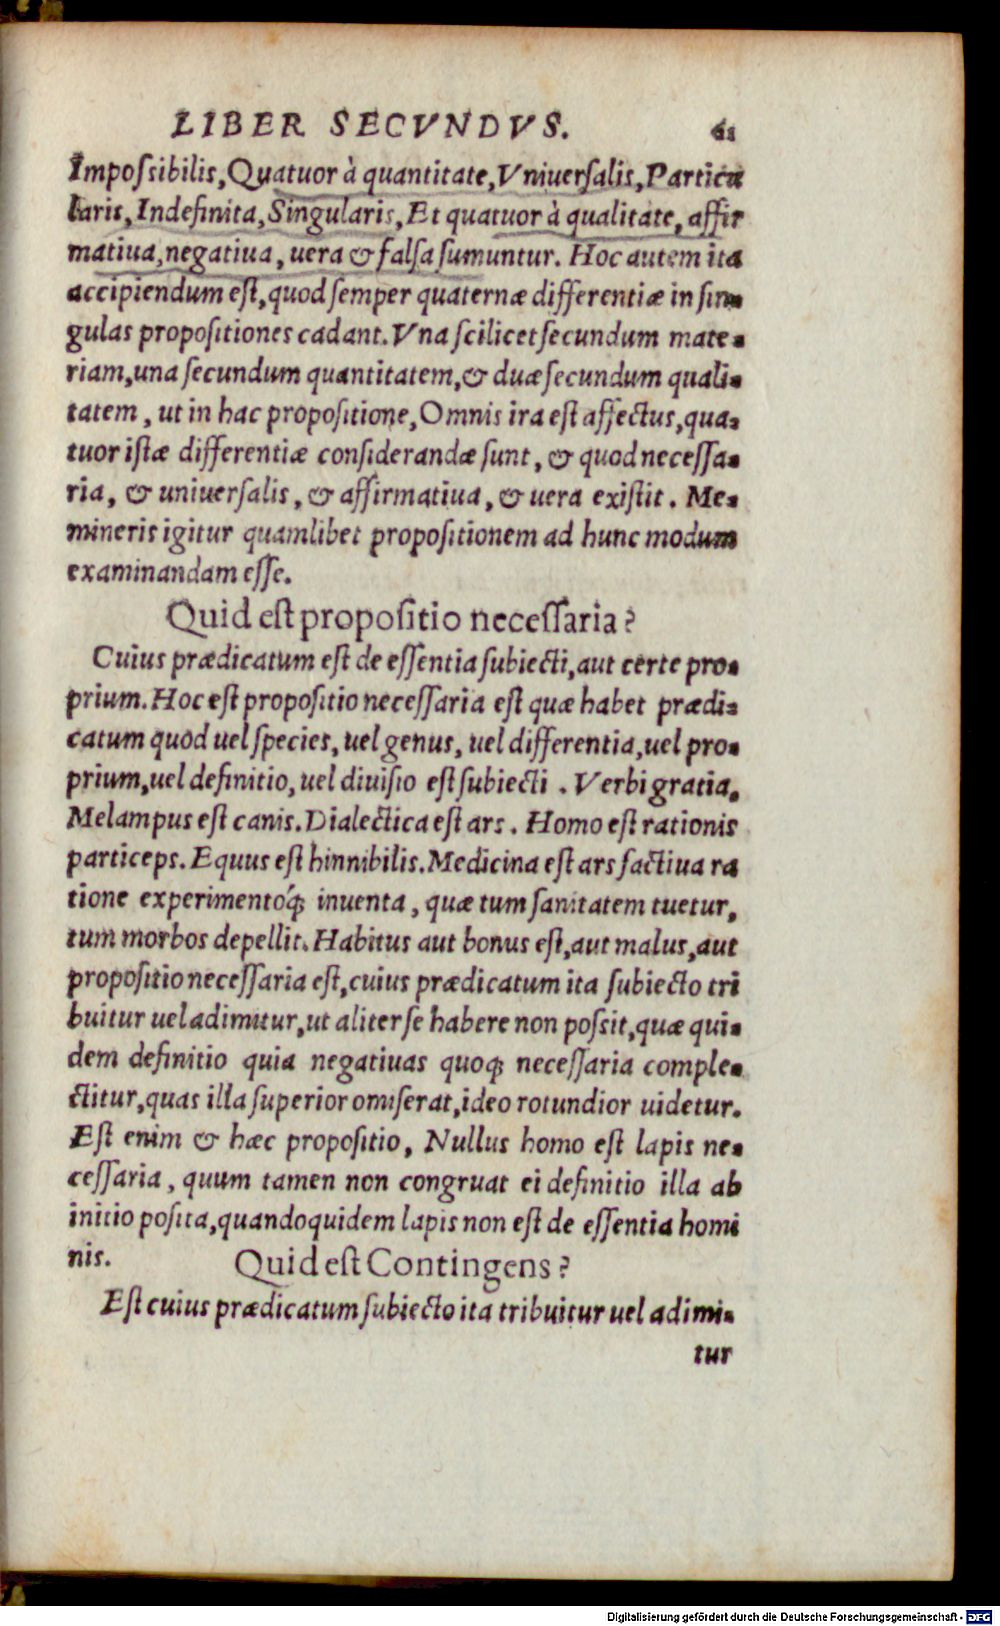 LIBER SECVNDVS. 61
Impossibilis, Quatuor à quantitate, Vniuersalis, Particu
laris, Indefinita, Singularis, Et quatuor à qualitate, affir
matiua, negatiua, uera & falsa sumuntur. Hoc autem ita
accipiendum est, quod semper quaternæ differentiæ in sin-
gulas propositiones cadant. Vna scilicet secundum mate-
riam, una secundum quantitatem, & duæ secundum quali-
tatem, ut in hac propositione, Omnis ira est affectus, qua-
tuor istæ differentiæ considerandæ sunt, & quod necessa-
ria, & uniuersalis, & affirmatiua, & uera existit. Me-
mineris igitur quamlibet propositionem ad hunc modum
examinandam esse.
Quid est propositio necessaria?
Cuius prædicatum est de essentia subiecti, aut certe pro-
prium. Hoc est propositio necessaria est quæ habet prædi-
catum quod uel species, uel genus, uel differentia, uel pro-
prium, uel definitio, uel diuisio est subiecti. Verbi gratia,
Melampus est canis. Dialectica est ars. Homo est rationis
particeps. Equus est hinnibilis. Medicina est ars factiua ra
tione experimentóq; inuenta, quæ tum sanitatem tuetur,
tum morbos depellit. Habitus aut bonus est, aut malus, aut
propositio necessaria est, cuius prædicatum ita subiecto tri
buitur uel adimitur, ut aliter se habere non possit, quæ qui-
dem definitio quia negatiuas quoq; necessaria comple-
ctitur, quas illa superior omiserat, ideo rotundior uidetur.
Est enim & hæc propositio, Nullus homo est lapis ne-
cessaria, quum tamen non congruat ei definitio illa ab
initio posita, quandoquidem lapis non est de essentia homi
nis. Quid est Contingens?
Est cuius prædicatum subiecto ita tribuitur uel adimi-
tur
Digitalisierung gefördert durch die Deutsche Forschungsgemeinschaft - DFG